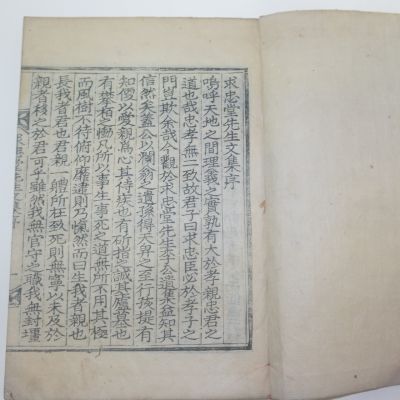 求忠堂先生文集序
嗚呼天地之間理義之實孰有大於孝親忠君之
道也哉忠孝無二致故君子曰求忠臣必於孝子之
門豈欺余哉今觀於求忠堂先生李公遺集益知其
信然矣蓋公以瀾翁之遺孫得天畀之至行孩提有
知便以愛親爲心其侍疾也有斫指之誠其廬墓也
有攀栢之慟凡所以事生事死之道無所不用其極
而風樹不待俯仰靡逮則乃愾然而曰生我者親也
長我者君也君親一軆所在致死則無寧以未及於
親者移之於君可乎雖然我無官守之職我無封壃
求忠堂先生文集序